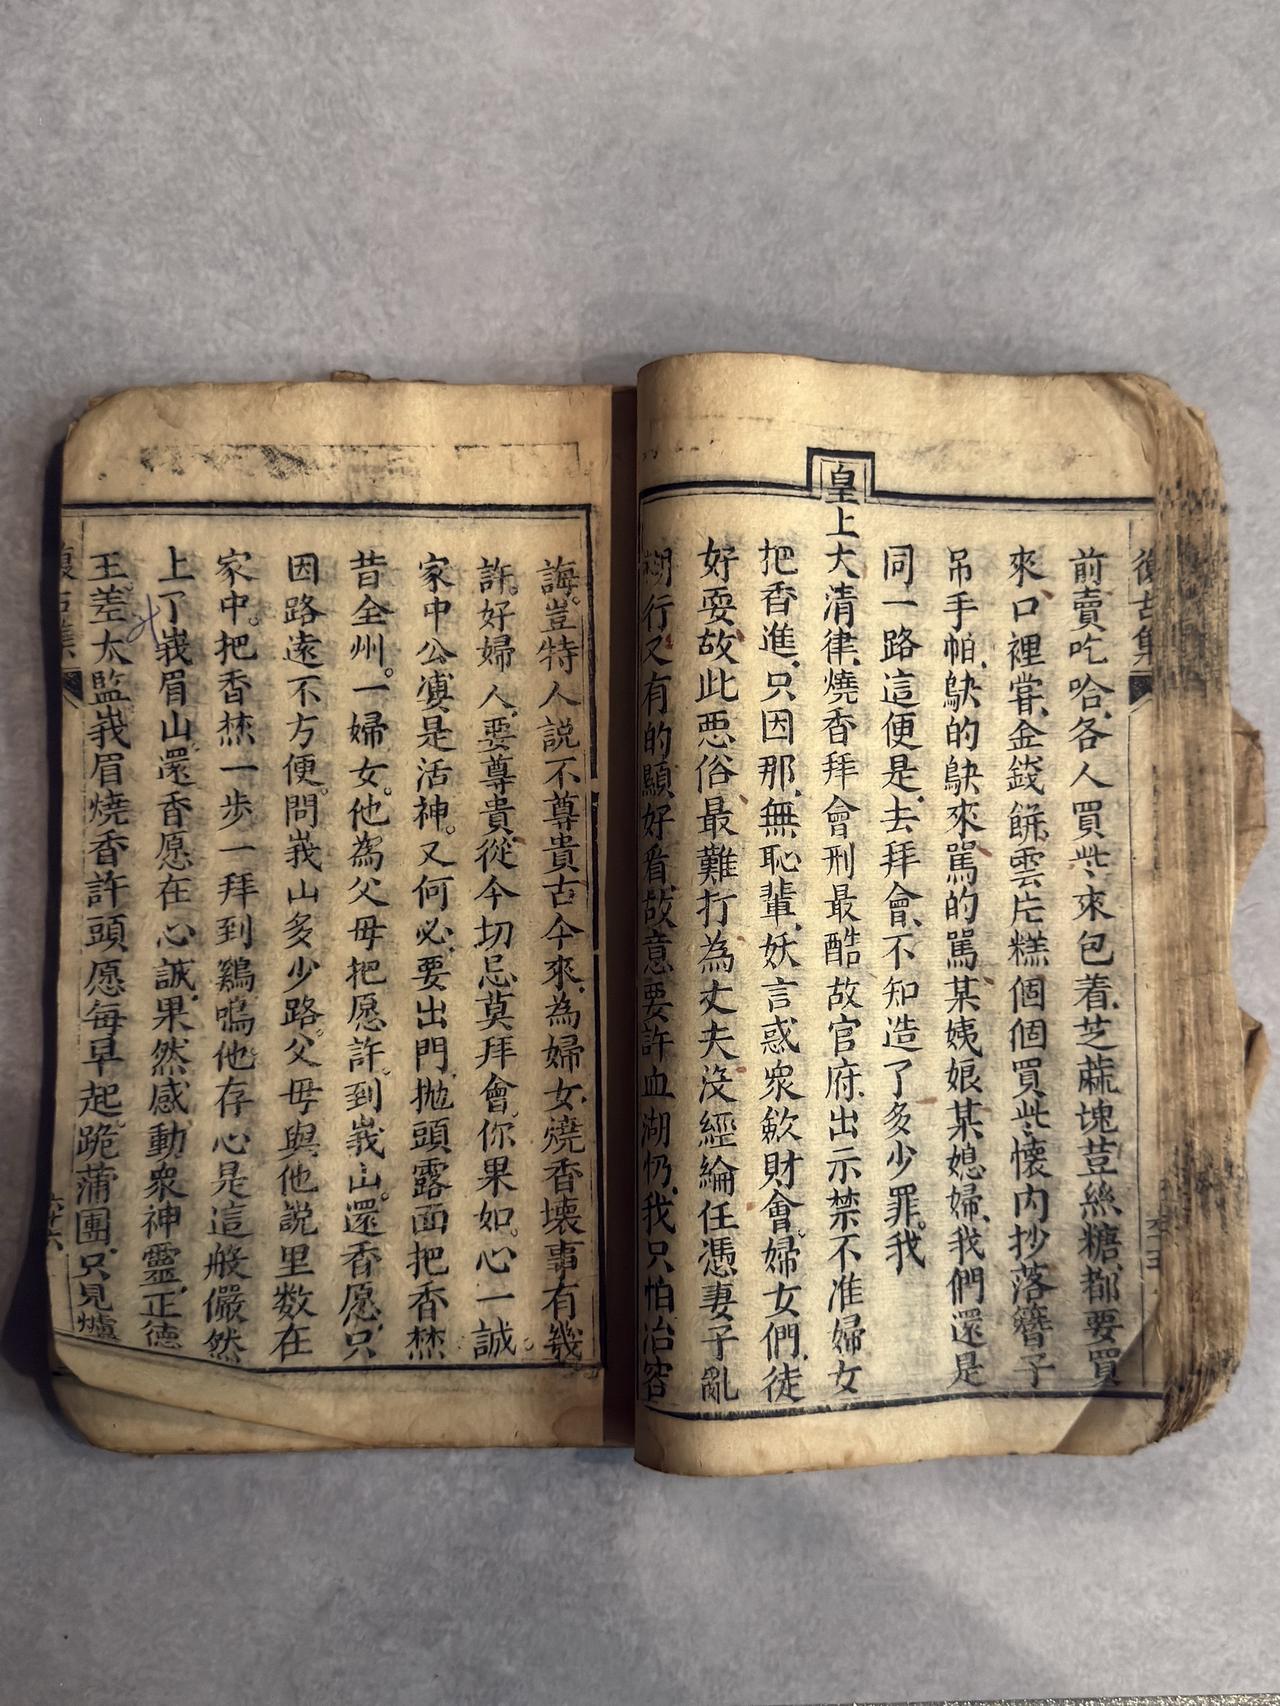 復古集
前賣吃哈、各人買些來包着、芝蔴塊荳絲糖、都要買
來、口裡嘗、金錢餅、雲片糕個個買些、懷內抄落簪子
吊手帕、缺的缺來罵的罵、某姨娘某媳婦、我們還是
同一路這便是、去拜會、不知造了多少罪。我
皇上大清律、燒香拜會刑最酷故官府、出示禁不准婦女
把香進、只因那、無恥輩、妖言惑眾歛財會。婦女們、徒
好耍故此惡俗最難打為丈夫沒經綸任憑妻子亂
胡行又有的顯好看、故意要許血湖仍、我只怕冶容
誨。豈特人說不尊貴古今來、為婦女、燒香壞事有幾
許。好婦人、要尊貴、從今切忌、莫拜會。你果如。心一誠。
家中公婆是活神。又何必、要出門、拋頭露面把香焚
昔全州。一婦女。他為父母把愿許。到峩山。還香愿、只
因路遠不方便。問峩山多少路。父母與他説里数在
家中。把香焚一步一拜到鷄鳴他存心是這般儼然
上了峩眉山。還香愿在心誠、果然感動眾神靈。正德
王差太監峩眉燒香許頭愿每早起。跪蒲團、只見爐
六十六